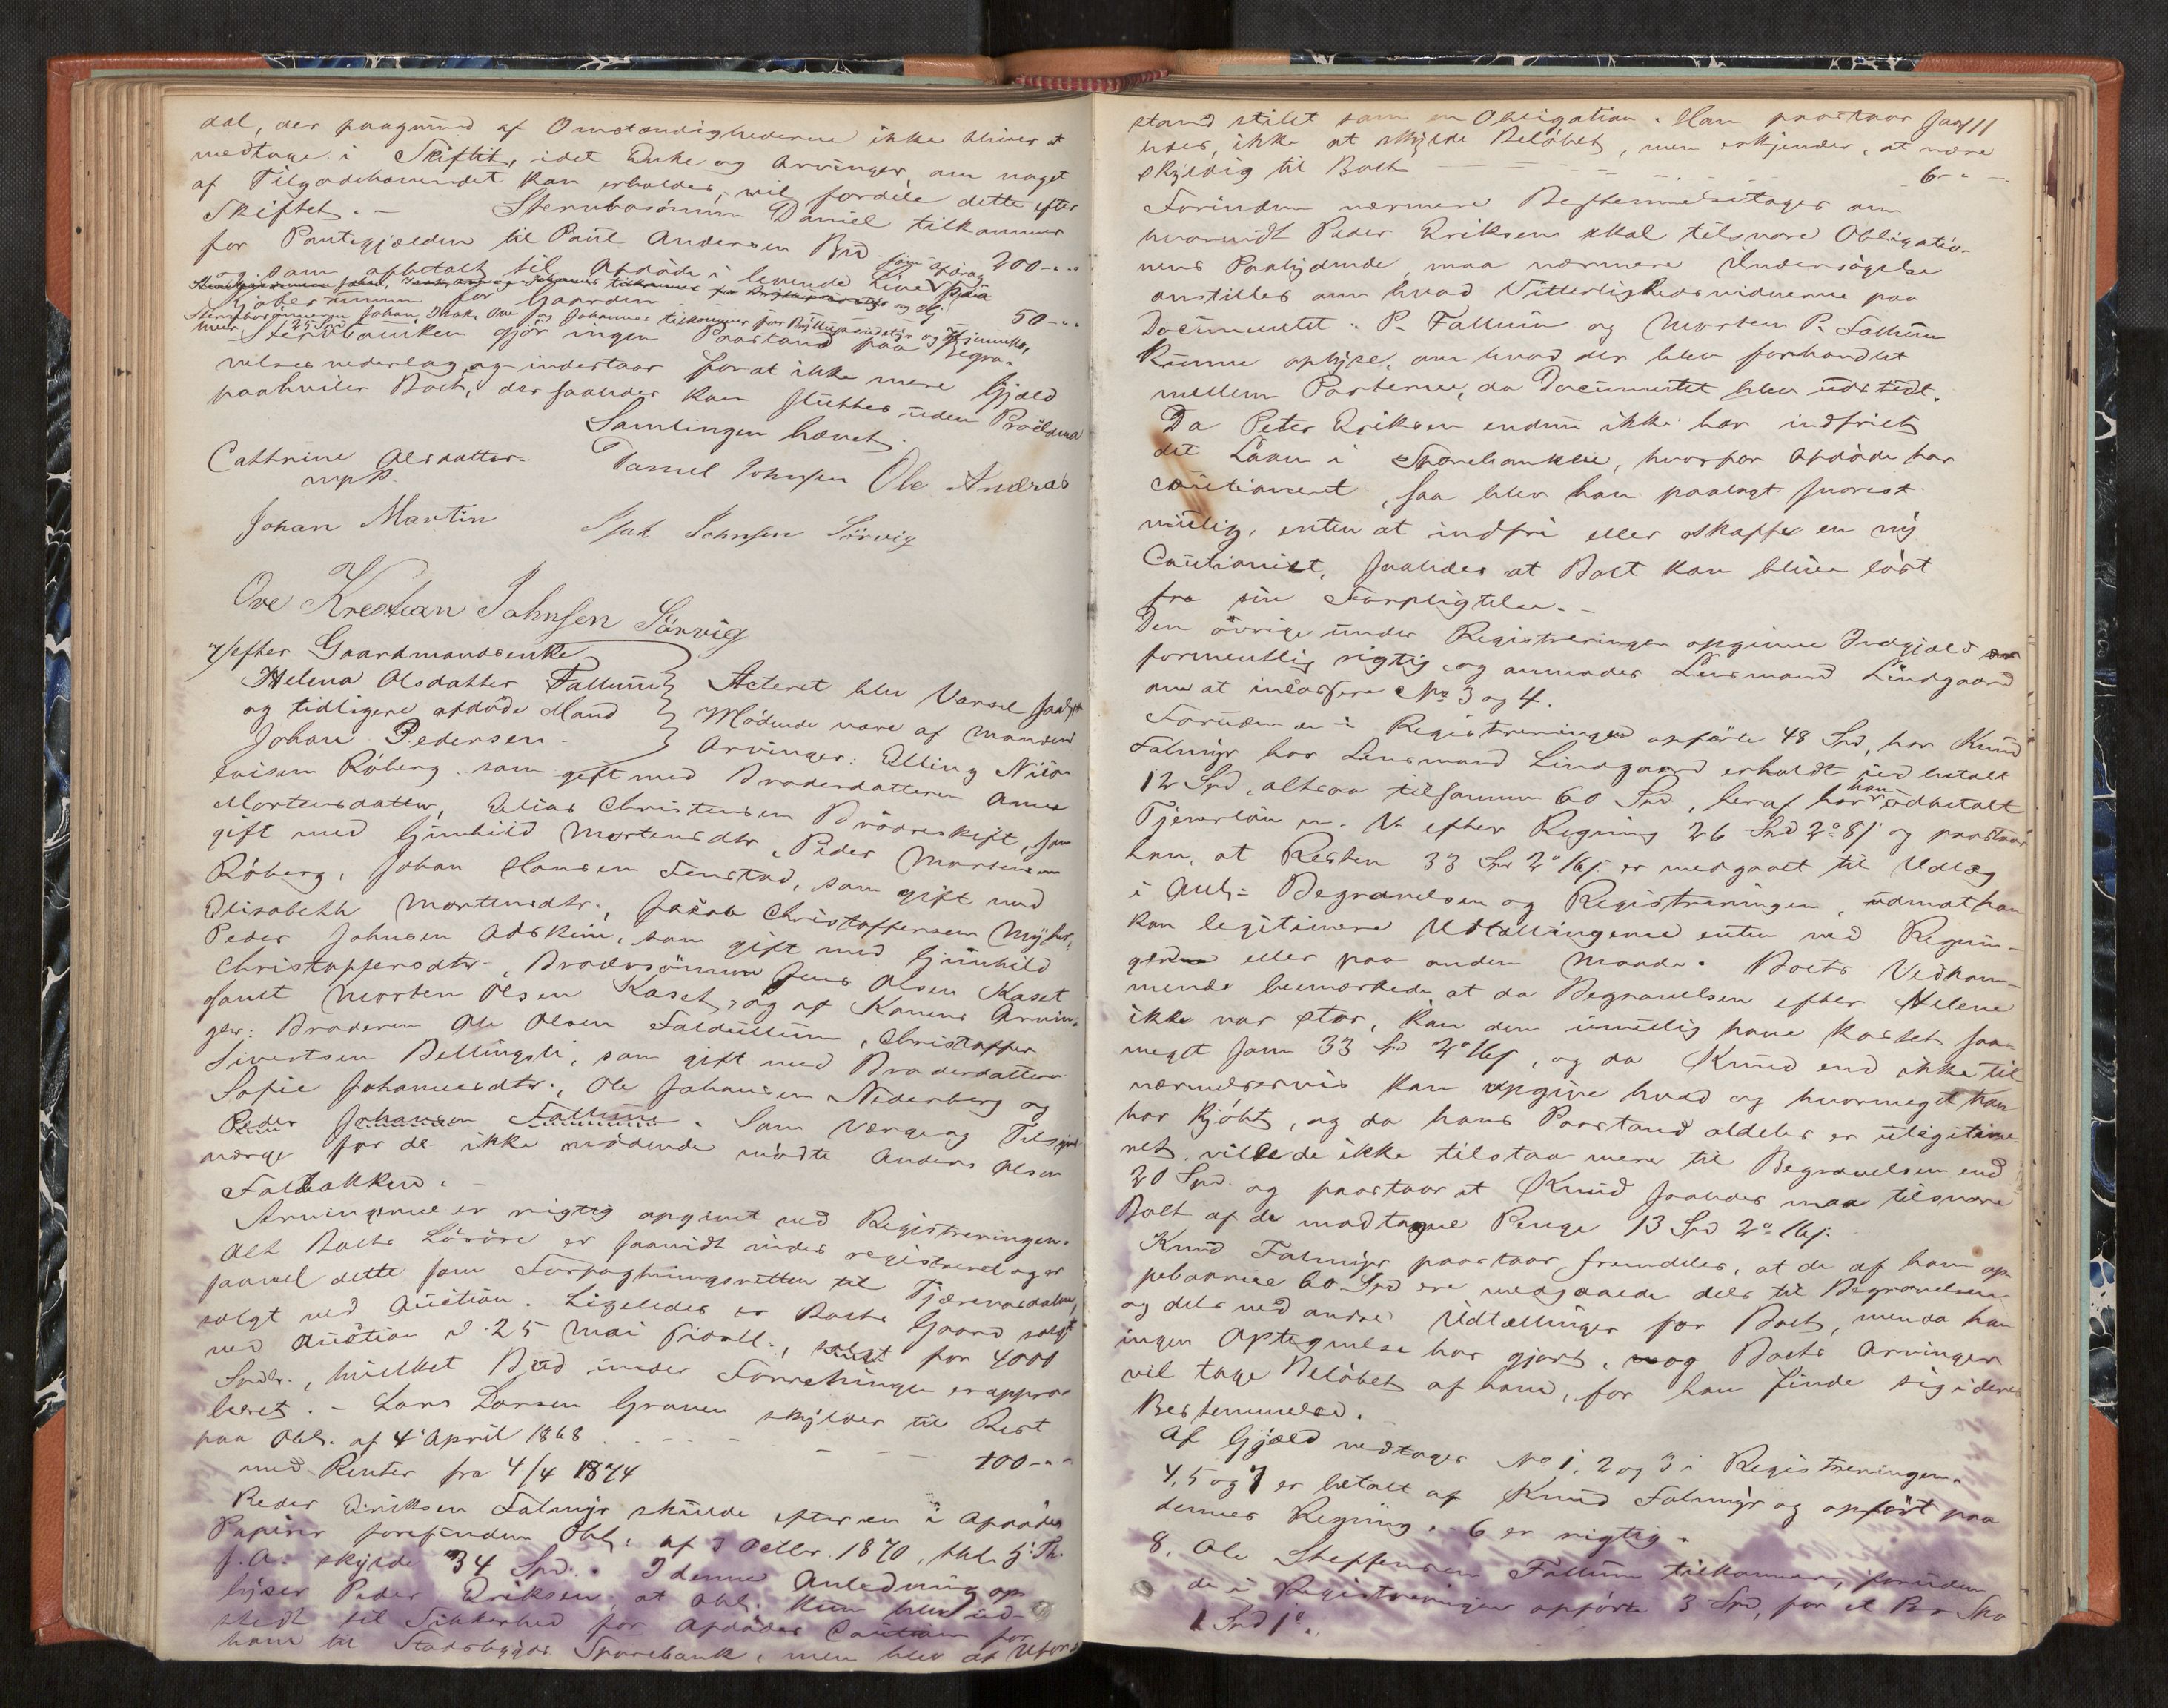 dal, der paagrund af Omstændighederne ikke bliver at
medtage i Skiftet, idet Enke og Arvinger, om noget
af Tilgodehavendet kan erholdes, vil fordele dette efter
Skiftet. – Stervbosønnen Daniel tilkommer
for Pantegjælden til Paul Andersen Bud 200 - "
og som afbetalt til Afdøde i levende Live paa
Kjøbesummen for Gaarden 50 - "
Stervbosønnerne Johan, Isak, Ove og Johannes tilkommer for
hver 25 Spd
Stervboenken gjør ingen Paastand paa Begra-
velsesvederlag og indestaar for at ikke mere Gjæld
paahviler Boet, der saaledes kan sluttes uden Proclama
Samlingen hævet.
Cathrine Olsdatter Daniel Johnsen Ole Andreas
mpP.
Johan Martin Isak Johnsen Sörvig
Ove Krestian Johnsen Sörvig
7/ efter Gaardmandsenke
Helena Olsdatter Fallum Acteret blev Varsel
og tidligere afdøde Mand Mødende vare af Mandens
Johan Pedersen Arvinger: Elling Nils-
Röberg som gift med Broderdatteren Anna
Mortensdatter, Elias Christensen Brödreskift, som
gift med Gunhild Mortensdtr, Peder Mortensen
Röberg, Johan Hansen Fenstad, som gift med
Elisabeth Mortensdtr., Jakob Christoffersen Myhr,
Peder Johnsen Askim, som gift med Gunhild
Christoffersdtr., Brodersønnen Jens Olsen Kaset
samt Morten Olsen Kaset, og af Konens Arvin-
ger: Broderen Ole Olsen Faldullum, Christoffer
Sivertsen Bellingsli, som gift med Broderdatteren
Sofie Johannesdtr., Ole Johansen Nederberg og
Peder Johansen Fallum. Som Værge og Tilsyns-
værge for de ikke mødende mødte Anders Olsen
Faldbakken. –
Arvingerne er rigtig opgivet ved Registreringen.
Alt Boets Løsøre er saavidt vides registreret og er
saavel dette som Forpagtningsretten til Tjærevasdalen,
solgt ved Auction. Ligeledes er Boets Gaard solgt
ved Auction d. 25 Mai for 4000
Spdlr., hvilket Bud under Forretningen er appro-
beret. – Lars Larsen Graven skylder til Rest
paa Obl. af 4 April 1868
med Renter fra 4/4 1874 100 - "
Peder Eriksen Falmyr skulde efter en i Afdødes
Papirer forefunden Obl. af 3 Octbr. 1870,
skylde 34 Spd. I denne Anledning op-
lyser Peder Eriksen, at Obl. kun blev ud-
stedt til Sikkerhed for Afdødes Caution for
ham til Stadsbygdens Sparebank, men blev af Ufor-
stand stilet som en Obligation. Han paastaar saa-
ledes, ikke at skylde Beløbet, men erkjender, at være
skyldig til Boet 6 - "
Forinden nærmere Bestemmelse tages om
hvorvidt Peder Eriksen skal tilsvare Obligatio-
nens Paalydende, maa nærmere Undersøgelse
anstilles om hvad Vitterlighedsvidnerne paa
Documentet: P. Fallum og Morten P. Fallum
kunne oplyse, om hvad der blev forhandlet
mellem Parterne, da Documentet blev udstedt.
Da Peter Eriksen endnu ikke har indfriet
det Laan i Sparebanken, hvorfor Afdøde har
cautioneret, saa blev han paalagt snarest
mulig, enten at indfri eller skaffe en ny
Cautionist, saaledes at Boet kan blive løst
fra sin Forpligtelse. –
Den øvrige under Registreringen opgivne Indgjæld er
formentlig rigtig og anmodes Lensmand Lindgaard
om at incassere No 3 og 4.
Foruden de i Registreringen opførte 48 Spd, har Knud
Falmyr hos Lensmand Lindgaard erholdt udbetalt
12 Spd, altsaa tilsammen 60 Spd, heraf har han udbetalt
Tjenerløn m. V. efter Regning 26 Spd 2o 8s og paastaar
han, at Resten 33 Spd 2o 16s er medgaaet til Udlæg
i Anl. Begravelsen og Registreringen, uden at han
kan legitimere Udtællingerne enten ved Regnin-
gerne eller paa anden Maade. Boets Vedkom-
mende bemærkede, at da Begravelsen efter Helene
ikke var stor, kan den umulig have kostet saa
meget som 33 Spd 2o 16s, og da Knud end ikke til-
nærmelsesvis kan opgive hvad og hvormeget han
har kjøbt, og da hans Paastand aldeles er ulegitime-
ret, ville de ikke tilstaa mere til Begravelsen end
20 Spd og paastaar at Knud saaledes maa tilsvare
Boet af de modtagne Penge 13 Spd 2o 16s.
Knud Falmyr paastaar fremdeles, at de af ham op-
pebaarne 60 Spd ere medgaaede dels til Begravelsen
og dels ved andre Udtællinger for Boet, men da han
ingen Optegnelse har gjort, og Boets Arvinger
vil tage Beløbet af ham, for han finde sig i deres
Bestemmelse.
Af Gjæld vedtages No 1, 2 og 3 i Registreringen.
4, 5 og 7 er betalt af Knud Falmyr og opført paa
dennes Regning. 6 er rigtig.
8. Ole Steffensen Fallum tilkommer, foruden
de i Registreringen opførte 3 Spd, for et Par Sko
1 Spd 1o "